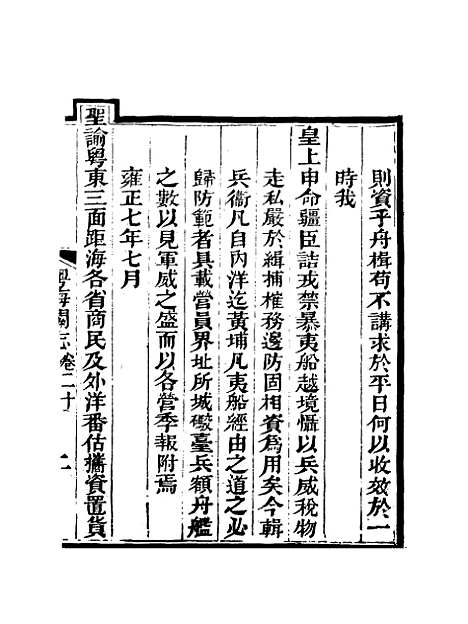 則資乎舟楫苟不講求於平日何以收效於一
時我
皇上申命疆臣詰戎禁暴夷船越境懾以兵威稅物
走私嚴於緝捕榷務邊防固相資為用矣今輯
兵衞凡自內洋迄黃埔凡夷船經由之道之必
歸防範者具載營員界址所城礮臺兵額舟艦
之數以見軍威之盛而以各營季報附焉
雍正七年七月
聖諭粵東三面距海各省商民及外洋番估攜資置貨
粵海關志卷二十
二